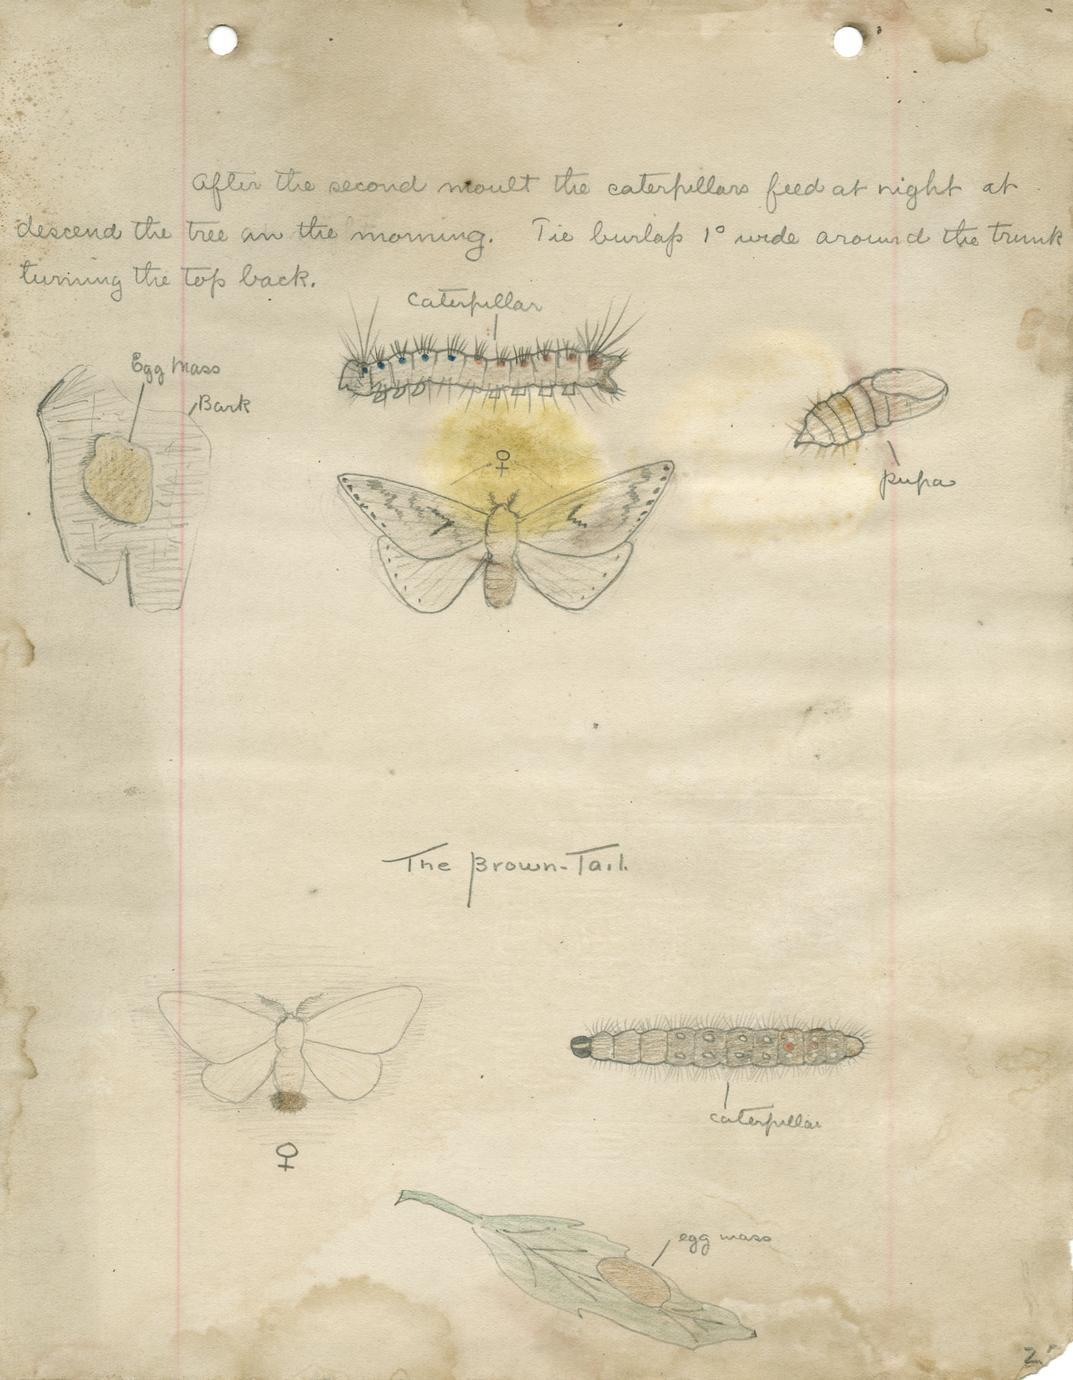 After the second moult the caterpillars feed at night at
descend the tree an the morning. Tie burlap 1° wide around the trunk
turning the top back.
Caterpillar
Egg Mass
Bark
♀
pupa
The Brown-Tail
♀
caterpillar
egg mass
2